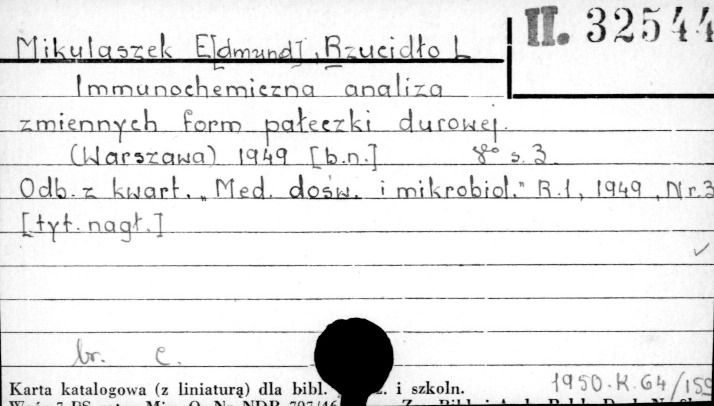 II. 32544
Mikulaszek E[dmund], Rzucidło L
Immunochemiczna analiza
zmiennych form pałeczki durowej.
(Warszawa) 1949 [b.n.] 8° s. 3
Odb. z kwart. „Med. dośw. i mikrobiol." R.1, 1949, Nr.3
[tyt. nagł.]
br. c.
1950.K.64/159
Karta katalogowa (z liniaturą) dla bibl. i szkoln.